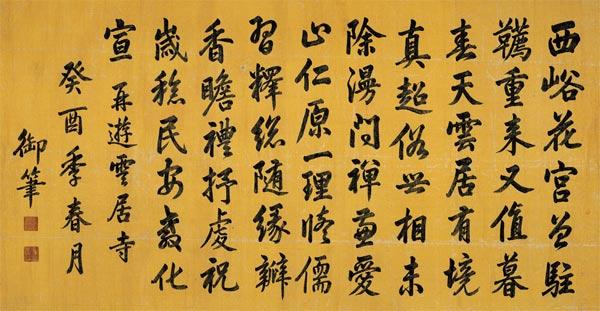 西峪花宮曾駐
韉重来又值暮
春天雲居有境
真超俗世相未
除漫問禅兼愛
止仁原一理脩儒
習釋總隨緣瓣
香瞻禮抒虔祝
歲稔民安教化
宣 再遊雲居寺
癸酉季春月
御筆